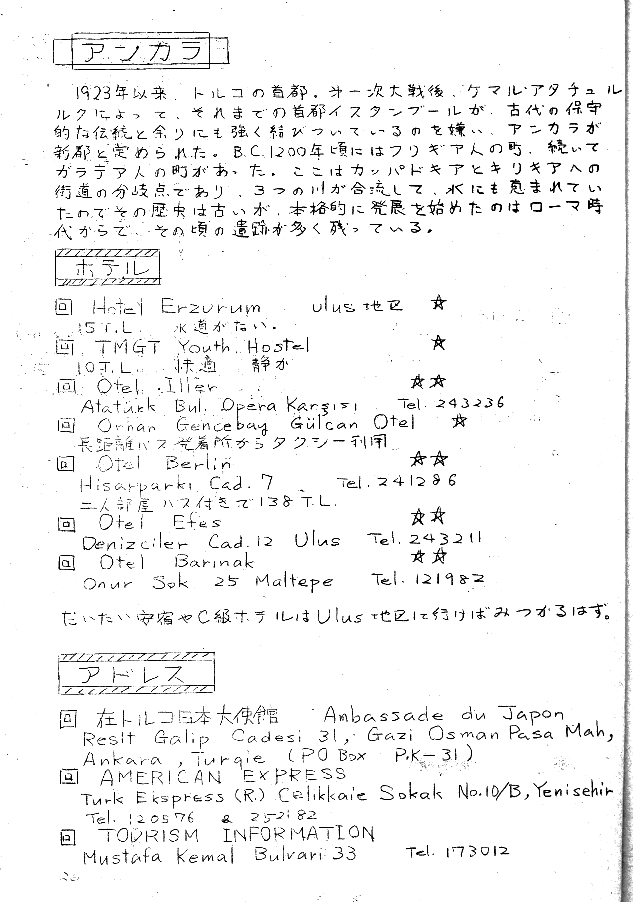 アンカラ
1923年以来、トルコの首都。第一次大戦後、ケマル・アタチュル
ルクによって、それまでの首都イスタンブールが、古代の保守
的な伝統と余りにも強く結びついているのを嫌い、アンカラが
新都と定められた。B.C.1200年頃にはフリギア人の町、続いて
ガラテア人の町があった。ここはカッパドキアとキリキアへの
街道の分岐点であり、3つの川が合流して、水にも恵まれてい
たのでその歴史は古いが、本格的に発展を始めたのはローマ時
代からで、その頃の遺跡が多く残っている。
ホテル
回 Hotel Erzurum Ulus地区 ☆
15T.L. 水道がない.
回 TMGT Youth Hostel ☆
10T.L. 快適 静か
回 Otel Iller ☆☆
Atatürk Bul. Opera Karşısı Tel. 243236
回 Orhan Gencebay Gülcan Otel ☆
長距離バス発着所からタクシー利用
回 Otel Berlin ☆☆
Hisarparkı Cad. 7 Tel. 241286
二人部屋バス付きで138T.L.
回 Otel Efes ☆☆
Denizciler Cad. 12 Ulus Tel. 243211
回 Otel Barınak ☆☆
Onur Sok 25 Maltepe Tel. 121982
だいたい安宿やC級ホテルはUlus地区に行けばみつかるはず。
アドレス
回 在トルコ日本大使館 Anbassade du Japon
Resit Galip Cadesi 31, Gazi Osman Pasa Mah,
Ankara, Turqie (PO Box P.K-31)
回 AMERICAN EXPRESS
Turk Ekspress (R.) Celikkaie Sokak No.10/B, Yenisehir
Tel. 120576 & 252182
回 TOURISM INFORMATION
Mustafa Kemal Bulvari 33 Tel. 173012